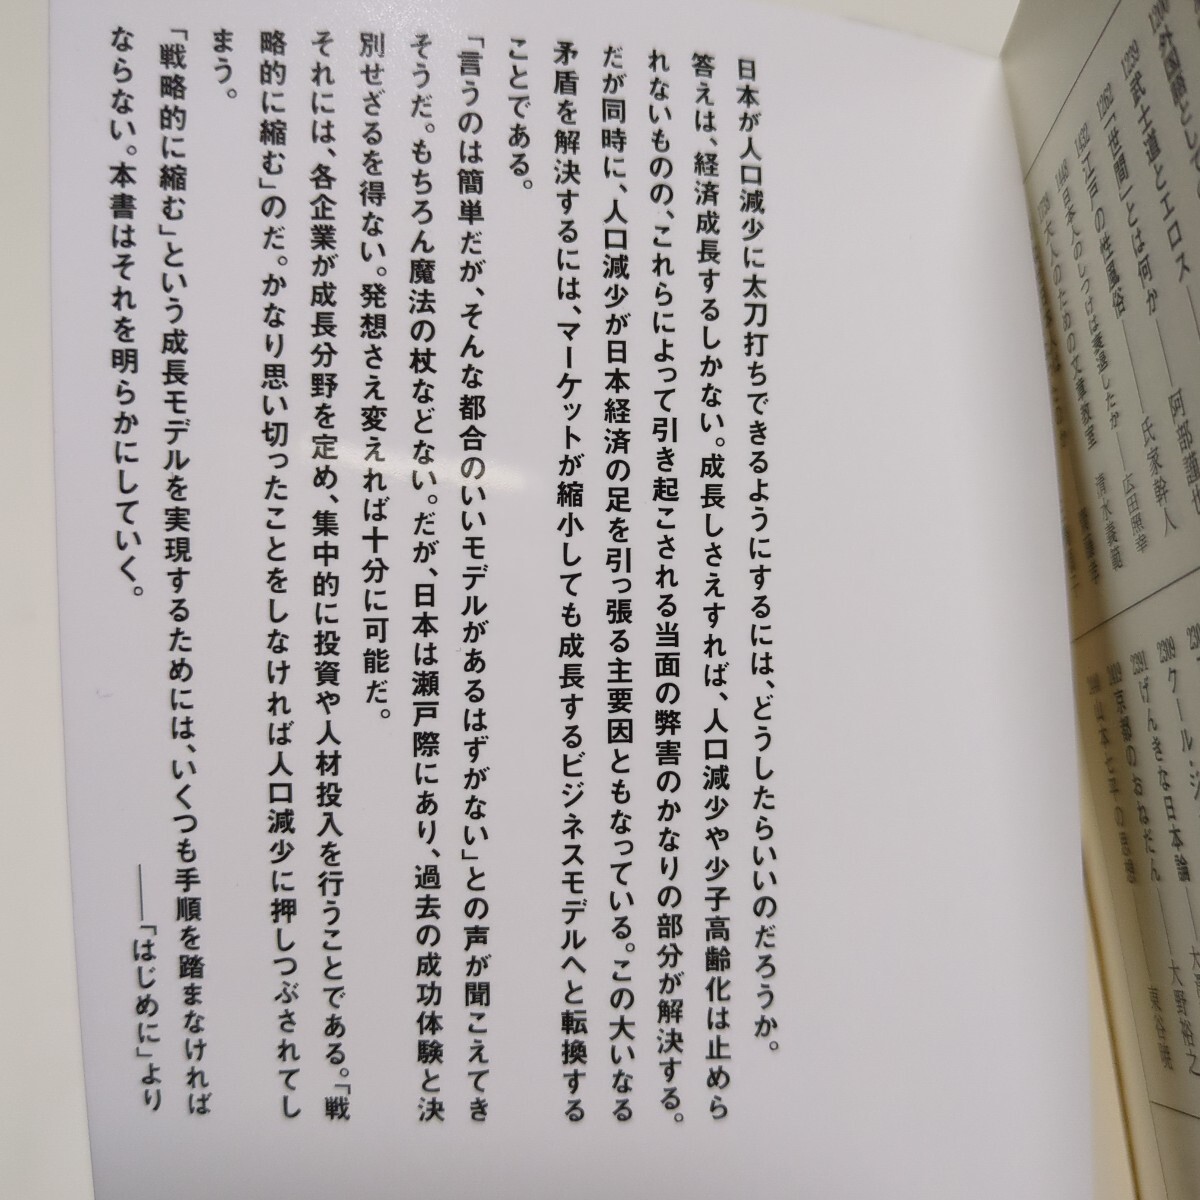 日本が人口減少に太刀打ちできるようにするには、どうしたらいいのだろうか。
答えは、経済成長するしかない。成長しさえすれば、人口減少や少子高齢化は止めら
れないものの、これらによって引き起こされる当面の弊害のかなりの部分が解決する。
だが同時に、人口減少が日本経済の足を引っ張る主要因ともなっている。この大いなる
矛盾を解決するには、マーケットが縮小しても成長するビジネスモデルへと転換する
ことである。
「言うのは簡単だが、そんな都合のいいモデルがあるはずがない」との声が聞こえてき
そうだ。もちろん魔法の杖などない。だが、日本は瀬戸際にあり、過去の成功体験と決
別せざるを得ない。発想さえ変えれば十分に可能だ。
それには、各企業が成長分野を定め、集中的に投資や人材投入を行うことである。「戦
略的に縮む」のだ。かなり思い切ったことをしなければ人口減少に押しつぶされてし
まう。
「戦略的に縮む」という成長モデルを実現するためには、いくつも手順を踏まなければ
ならない。本書はそれを明らかにしていく。
――「はじめに」より
外国語として
武士道とエロス――氏家幹人
1262「世間」とは何か――阿部謹也
1432 江戸の性風俗――氏家幹人
1448 日本人のしつけは衰退したか――広田照幸
大人のための文章教室――清水義範
2389 クール
2391 げんきな日本論――大
京都のおねだん――大野裕之
山本七平の思想――東谷暁